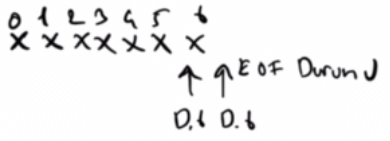 0 1 2 3 4 5 6
x x x x x x x
EOF Durumu
D.b D.b